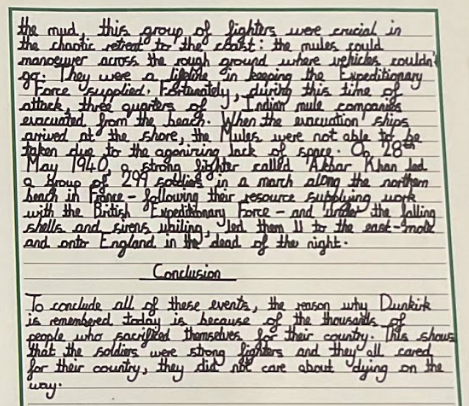 the mud, this group of fighters were crucial in
the chaotic retreat to the coast: the mules could
manoeuver across the rough ground where vehicles couldn't
go. They were a lifeline in keeping the Expeditionary
Force supplied. Fortunately, during this time of
attack, three quarters of Indian mule companies
evacuated from the beach. When the evacuation ships
arrived at the shore, the Mules were not able to be
taken due to the agonizing lack of space. On 28th
May 1940, a strong fighter called Akbar Khan led
a group of 299 soldiers in a march along the northern
beach in France - following their resource supplying work
with the British Expeditionary Force - and under the falling
shells and sirens wailing, led them to the east-mole
and onto England in the dead of the night.
Conclusion
To conclude all of these events, the reason why Dunkirk
is remembered today is because of the thousands of
people who sacrifised themselves for their country. This shows
that the soldiers were strong fighters and they all cared
for their country, they did not care about dying on the
way.